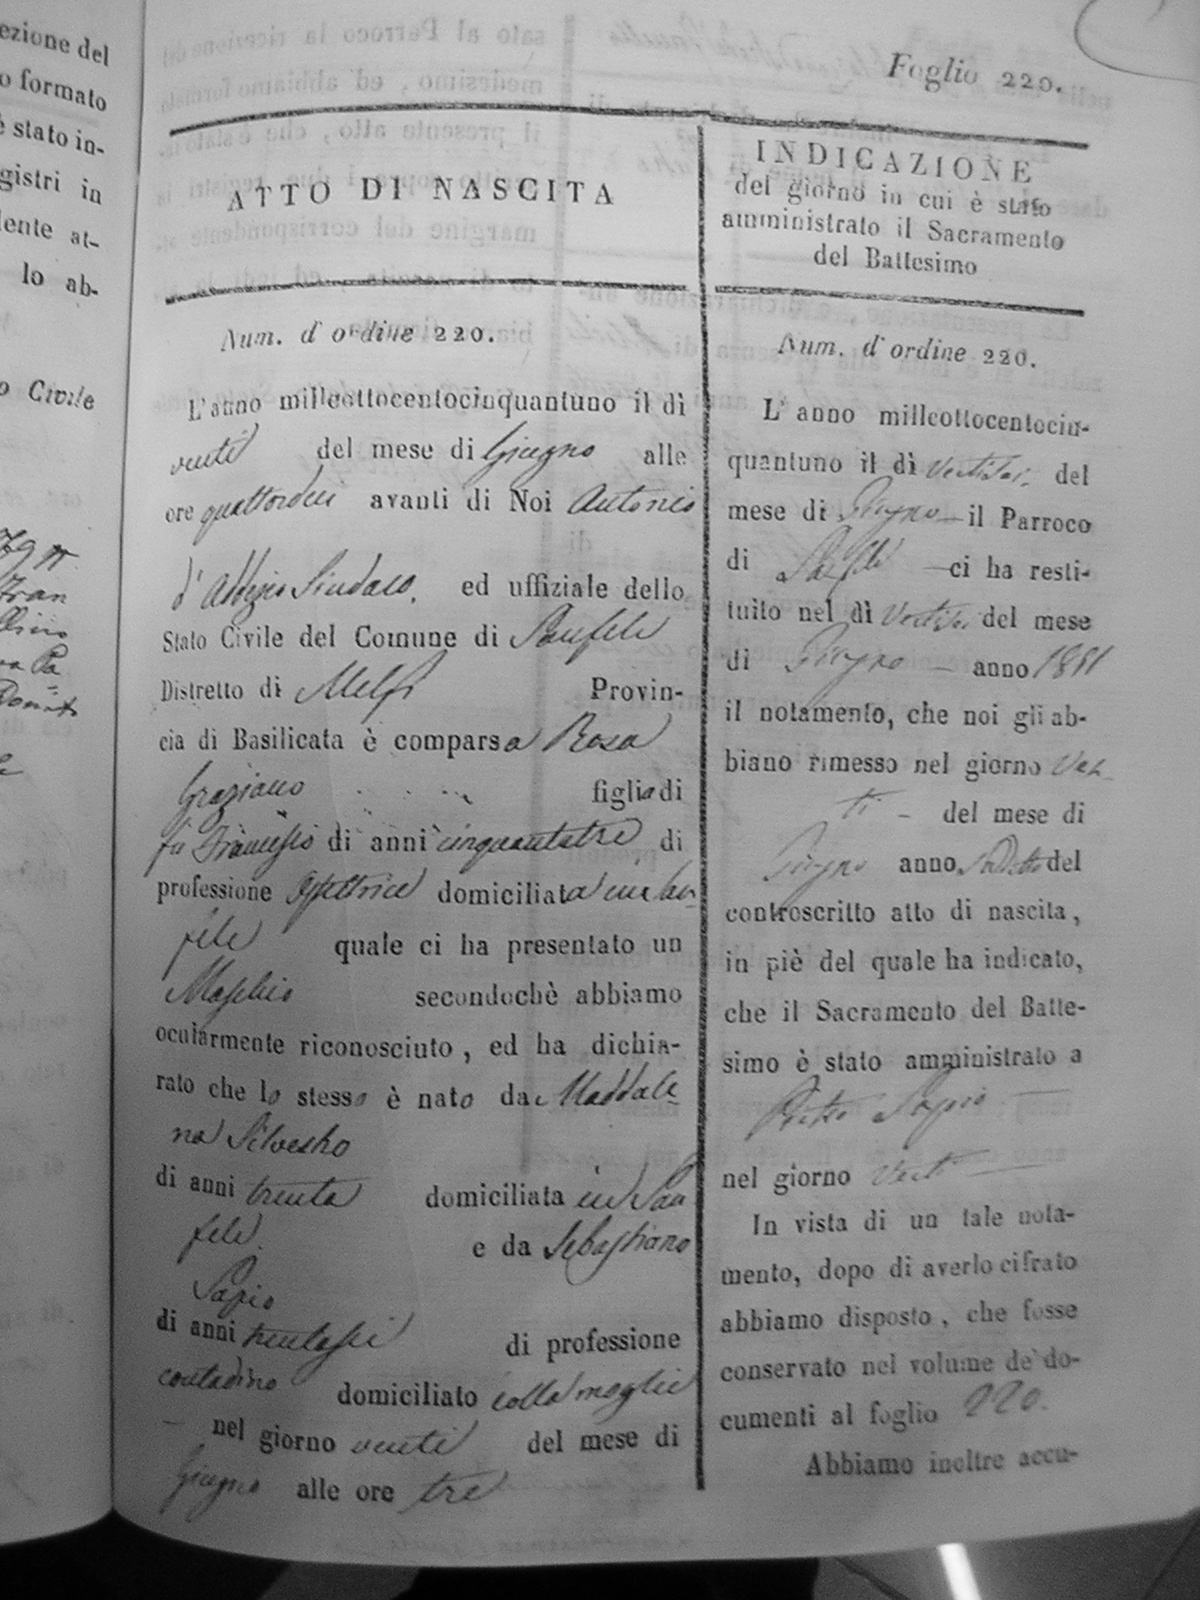 ezione del
o formato
è stato in-
gistri in
dente at-
lo ab-
o Civile
Foglio 220.
ATTO DI NASCITA
Num. d'ordine 220.
L'anno milleottocentocinquantuno il dì
venti del mese di Giugno alle
ore quattordici avanti di Noi Antonio
d'Abbizio Sindaco. ed uffiziale dello
Stato Civile del Comune di Sanfele
Distretto di Melfi Provin-
cia di Basilicata è comparsa Rosa
Graziano figlia di
fu Francesco di anni cinquantatre di
professione Ostetrice domiciliata in San
fele quale ci ha presentato un
Maschio secondochè abbiamo
ocularmente riconosciuto, ed ha dichia-
rato che lo stesso è nato da Maddale
na Silvestro
di anni trenta domiciliata in San
fele e da Sebastiano
Sapio
di anni trentasei di professione
contadino domiciliato colla moglie
nel giorno venti del mese di
Giugno alle ore tre
INDICAZIONE
del giorno in cui è stato
amministrato il Sacramento
del Battesimo
Num. d'ordine 220.
L'anno milleottocentocin-
quantuno il dì Ventidue del
mese di Giugno il Parroco
di Sanfele ci ha resti-
tuito nel dì Ventidue del mese
di Giugno anno 1851
il notamento, che noi gli ab-
biano rimesso nel giorno Ven-
ti del mese di
Giugno anno Suddetto del
controscritto atto di nascita,
in piè del quale ha indicato,
che il Sacramento del Batte-
simo è stato amministrato a
Pietro Sapio
nel giorno Venti
In vista di un tale nota-
mento, dopo di averlo cifrato
abbiamo disposto, che fosse
conservato nel volume de' do-
cumenti al foglio 220.
Abbiamo inoltre accu-